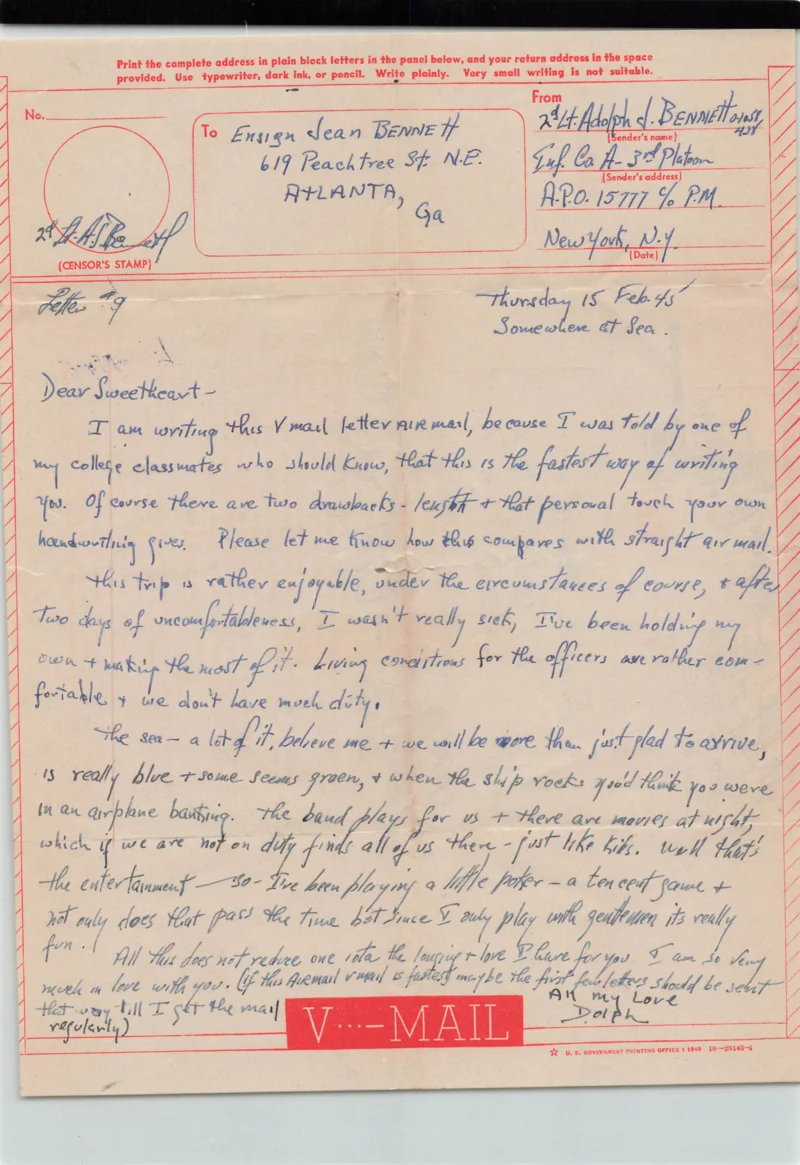 Print the complete address in plain block letters in the panel below, and your return address in the space
provided. Use typewriter, dark ink, or pencil. Write plainly. Very small writing is not suitable.
No.
To Ensign Jean BENNETT
619 Peachtree St. N.E.
ATLANTA,
Ga
From
2d Lt. Adolph J. BENNETT
(Sender's name)
Inf. Co A- 3rd Platoon
(Sender's address)
A.P.O. 15777 c/o P.M.
New York, N.Y.
(Date)
2d Lt. A J Bennett
(CENSOR'S STAMP)
Letter #9
Thursday 15 Feb. 45
Somewhere at Sea.
Dear Sweetheart-
I am writing this V mail letter AIR mail, because I was told by one of
my college classmates who should know, that this is the fastest way of writing
you. Of course there are two drawbacks - length + that personal touch your own
handwriting gives. Please let me know how this compares with straight air mail.
This trip is rather enjoyable, under the circumstances of course, + after
two days of uncomfortableness, I wasn't really sick, I've been holding my
own + making the most of it. Living conditions for the officers are rather com-
fortable + we don't have much duty.
The sea - a lot of it, believe me + we will be more than just glad to arrive,
is really blue + some seems green, + when the ship rocks you'd think you were
in an airplane banking. The band plays for us + there are movies at night,
which if we are not on duty finds all of us there - just like kids. Well that's
the entertainment - so - I've been playing a little poker - a ten cent game +
not only does that pass the time but since I only play with gentlemen its really
fun. All this does not reduce one iota the longing + love I have for you. I am so very
much in love with you. (If this AIRmail vmail is fastest maybe the first few letters should be sent
that way till I get the mail
regularily)
All my Love
Dolph
V···—MAIL
☆ U. S. GOVERNMENT PRINTING OFFICE : 1943 16—28143-4